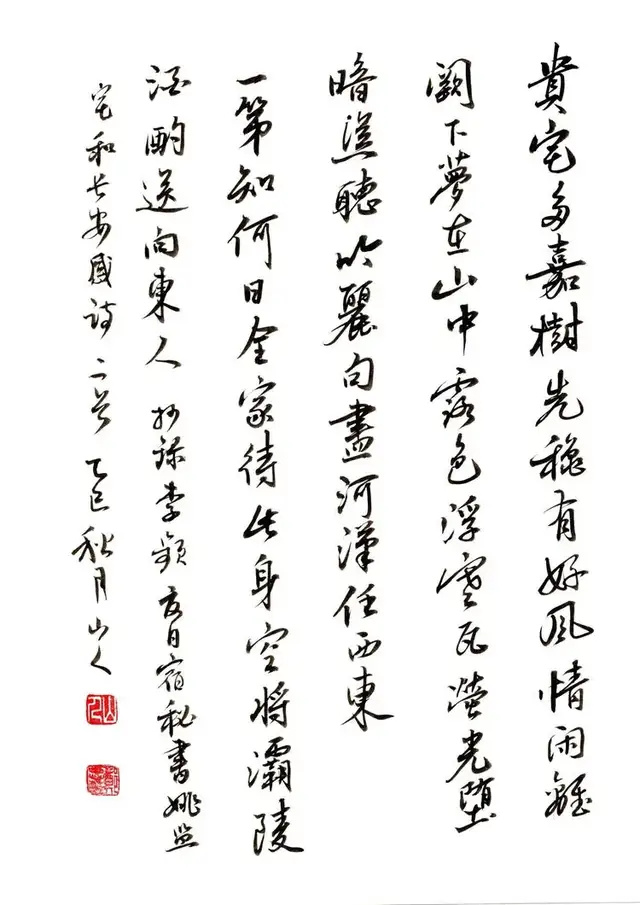 貴宅多嘉樹先穐有好風情閑離
闕下夢在山中露色浮寒瓦螢光堕
暗叢聽吟麗句盡河漢任西東
一第知何日全家待此身空將灞陵
酒酌送向東人 抄録李頻夏日宿秘書姚監
宅和長安感詩二首 乙巳秋月山人
山人